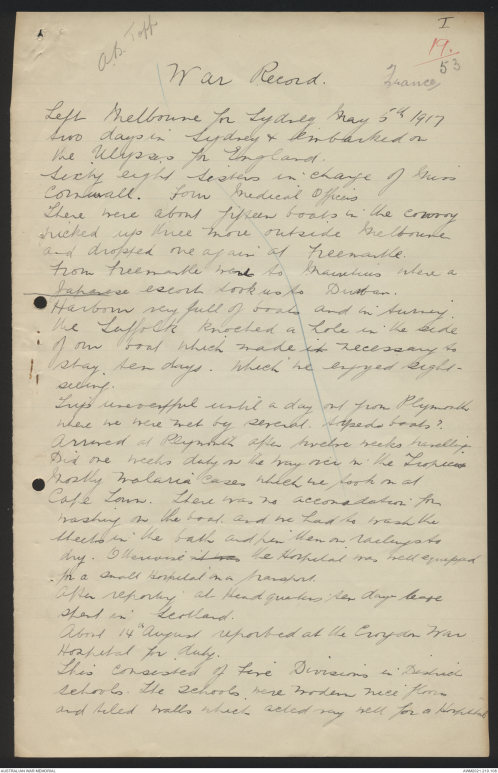 I
19.
53
A.B. Topp
War Record.
France
Left Melbourne for Sydney May 5th 1917
two days in Sydney & embarked on
the Ulysses for England.
Sixty eight Sisters in charge of Miss
Cornwall. Four Medical Officers
There were about fifteen boats in the convoy
picked up three more outside Melbourne
and dropped one again at Freemantle.
From Freemantle went to Mauritius where a
Japanese escort took us to Durban.
Harbour very full of boats and in turning
the Suffolk knocked a hole in the side
of our boat which made it necessary to
stay ten days. Which we enjoyed sight-
seeing.
Trip uneventful until a day out from Plymouth
where we were met by several torpedo boats?.
Arrived at Plymouth after twelve weeks travelling.
Did one weeks duty on the way over in the Tropics
Mostly Malaria cases which we took on at
Cape Town. There was no accomodation for
washing on the boat and we had to wash the
sheets in the bath and pin them on railings to
dry. Otherwise it was the Hospital was well equipped
for a small Hospital on a transport.
After reporting at Headquarters ten days leave
spent in Scotland.
About 14th August reported at the Croydon War
Hospital for duty.
This consisted of Five Divisions in District
schools. The schools were modern nice floors
and tiled walls which acted very well for a Hospital
AUSTRALIAN WAR MEMORIAL